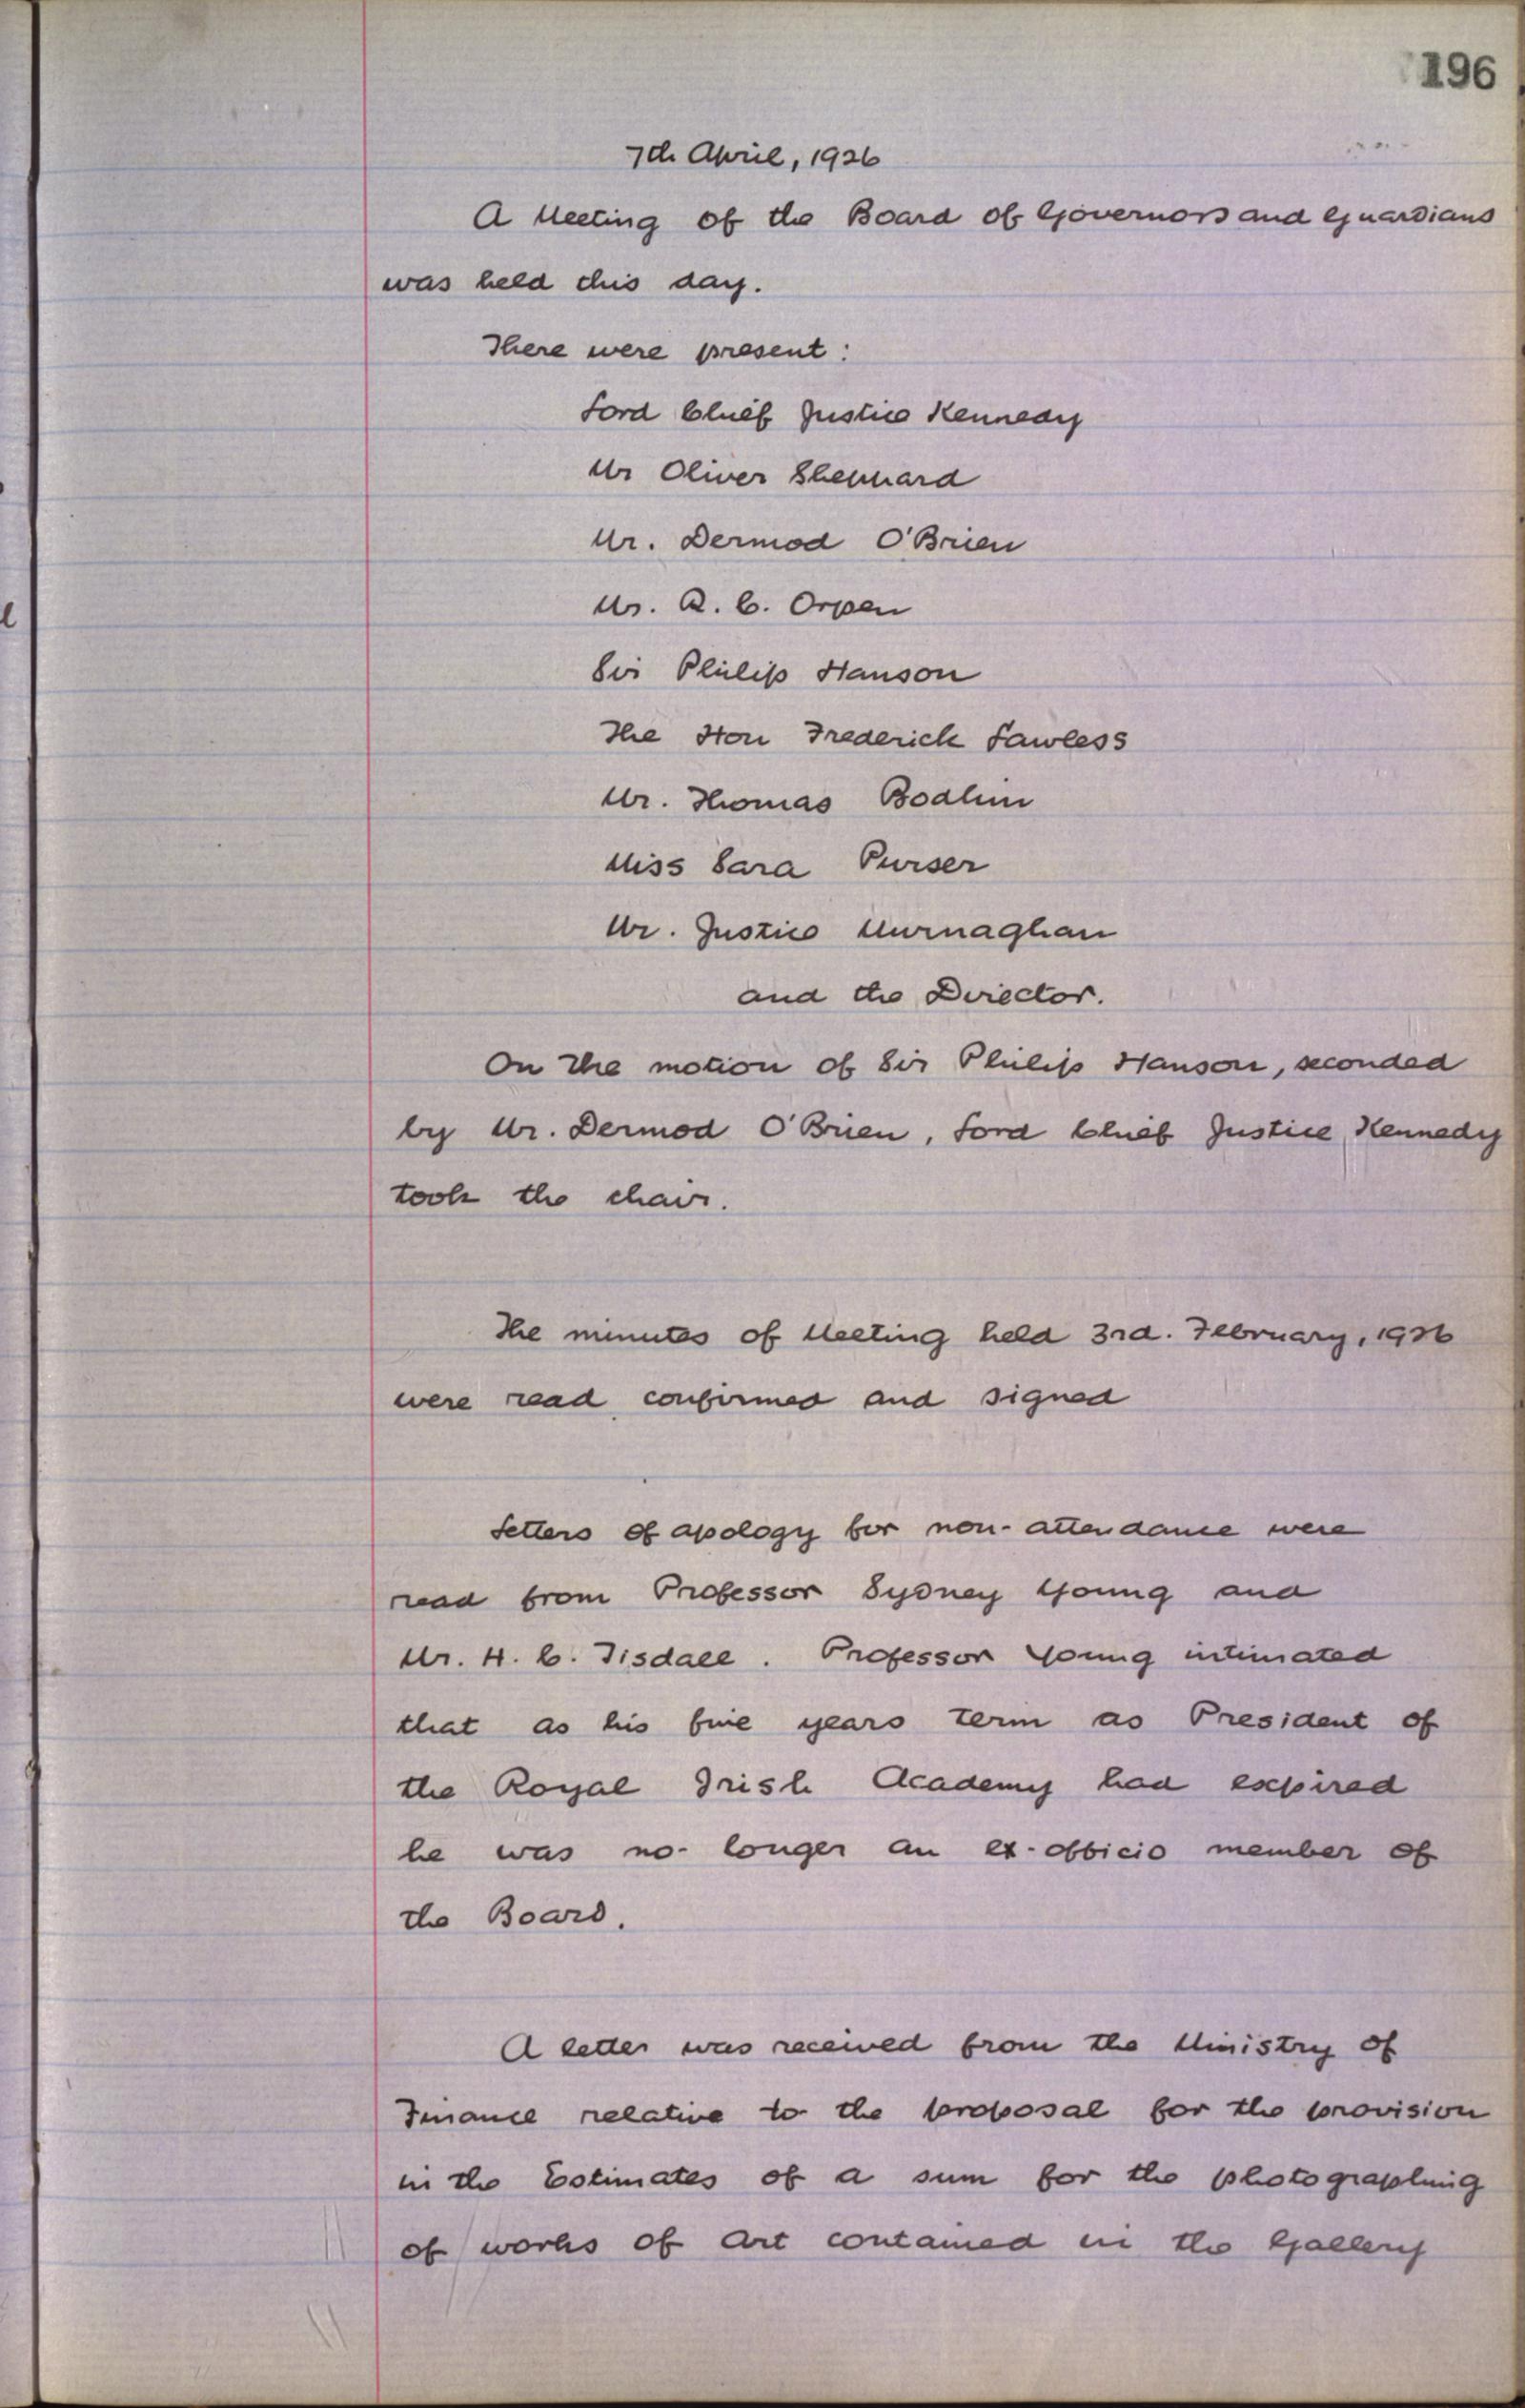 196
7th April, 1926
A Meeting of the Board of Governors and Guardians
was held this day.
There were present:
Lord Chief Justice Kennedy
Mr Oliver Sheppard
Mr. Dermod O'Brien
Mr. R. C. Orpen
Sir Philip Hanson
The Hon Frederick Lawless
Mr. Thomas Bodkin
Miss Sara Purser
Mr. Justice Murnaghan
and the Director.
On the motion of Sir Philip Hanson, seconded
by Mr. Dermod O'Brien, Lord Chief Justice Kennedy
took the chair.
The minutes of Meeting held 3rd. February, 1926
were read, confirmed and signed
Letters of apology for non-attendance were
read from Professor Sydney Young and
Mr. H. C. Tisdall. Professor Young intimated
that as his five years term as President of
the Royal Irish Academy had expired
he was no longer an ex-officio member of
the Board.
A letter was received from the Ministry of
Finance relative to the proposal for the provision
in the Estimates of a sum for the photographing
of works of Art contained in the Gallery